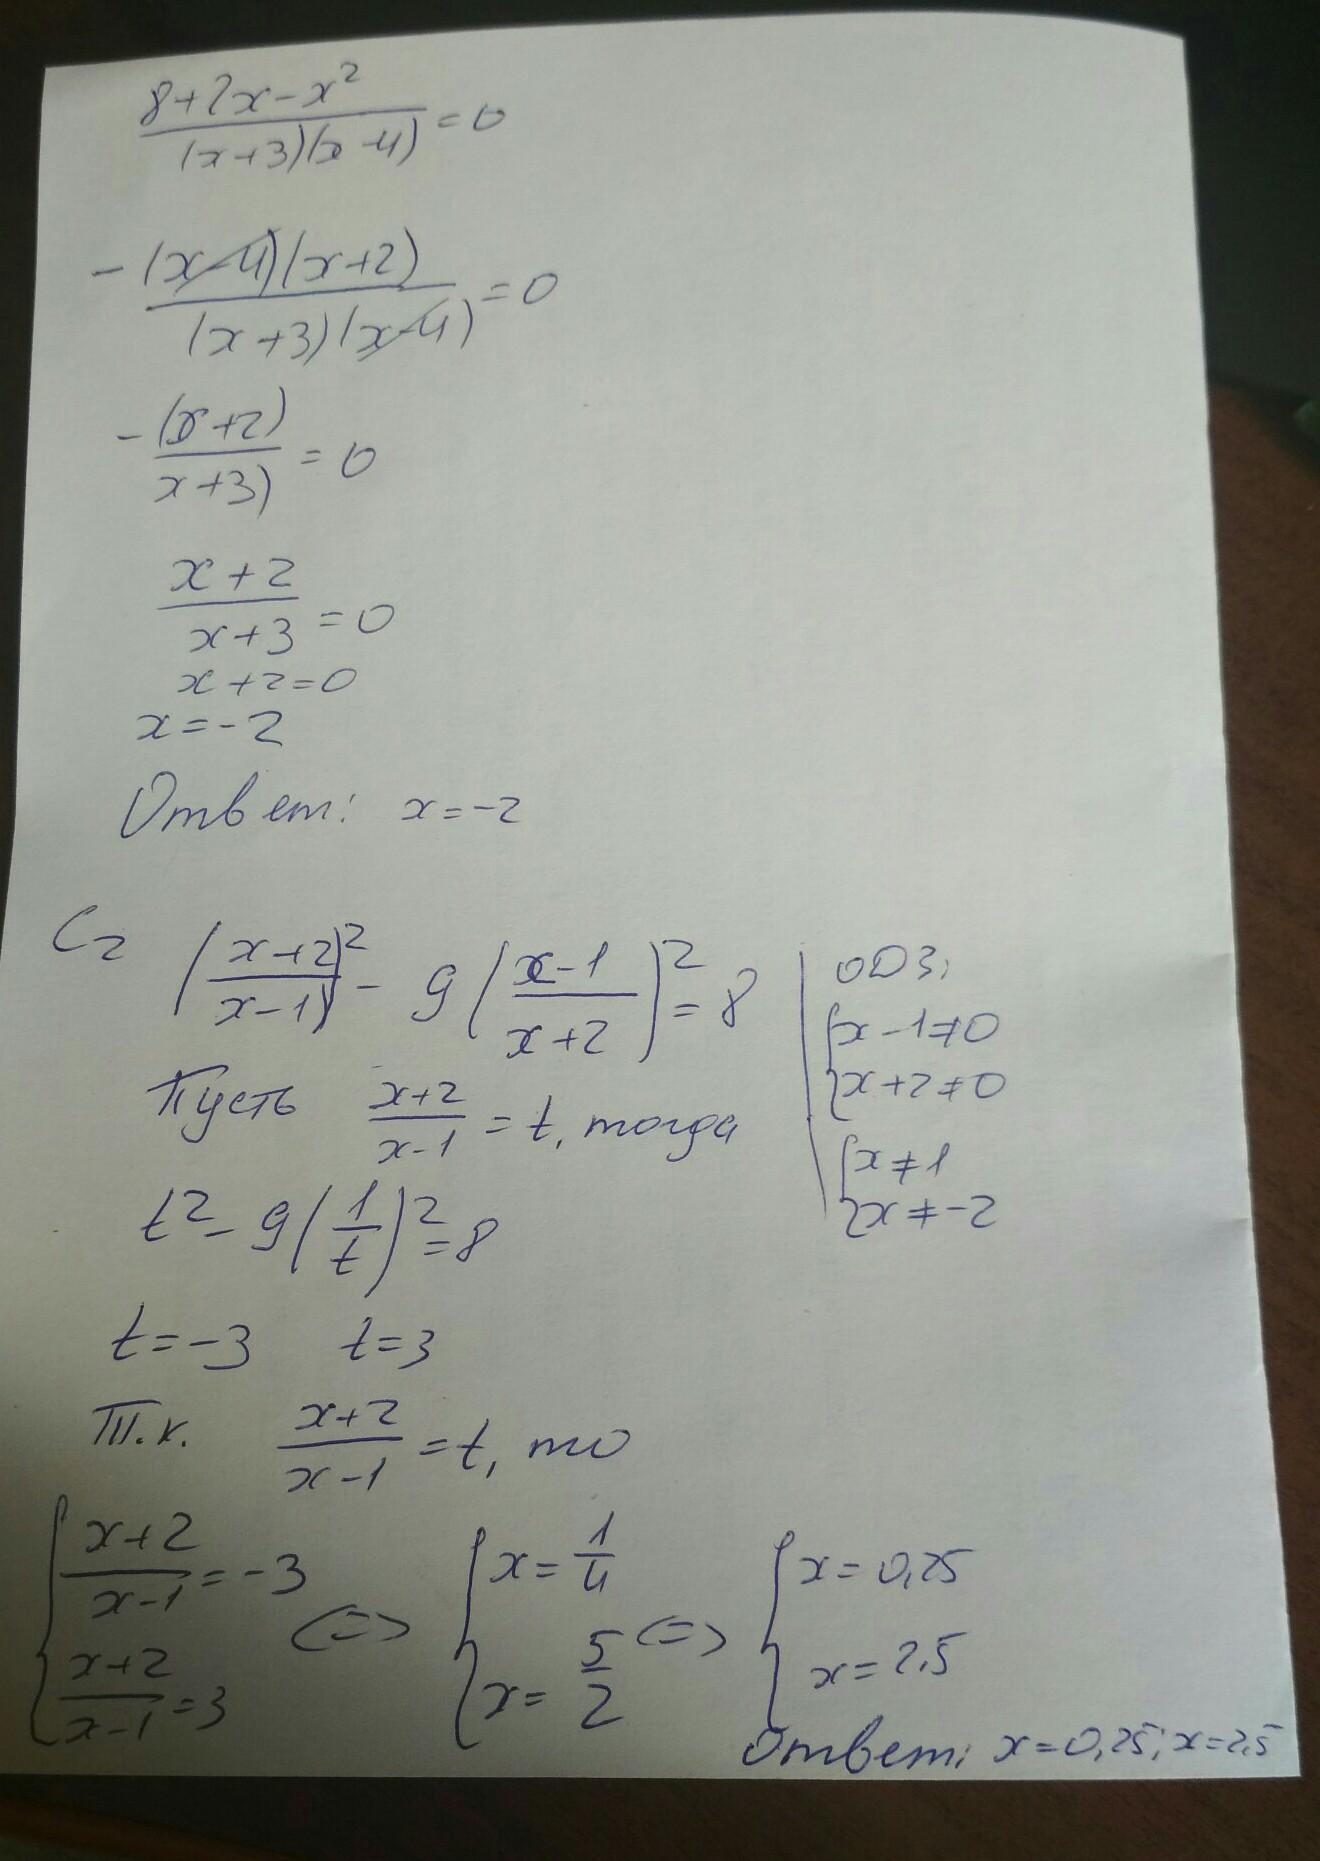 (8+2x-x²)/((x+3)(x-4)) = 0
-((x-4)(x+2))/((x+3)(x-4)) = 0
-(x+2)/(x+3) = 0
(x+2)/(x+3) = 0
x+2=0
x=-2
Ответ: x=-2
C2 ((x+2)/(x-1))² - 9((x-1)/(x+2))² = 8
ОДЗ:
{x-1≠0
{x+2≠0
{x≠1
{x≠-2
Пусть (x+2)/(x-1) = t, тогда
t² - 9(1/t)² = 8
t=-3 t=3
Т.к. (x+2)/(x-1) = t, то
{(x+2)/(x-1) = -3 <=> {x=1/4 <=> {x=0,25
{(x+2)/(x-1) = 3 {x=5/2 {x=2,5
Ответ: x=0,25; x=2,5